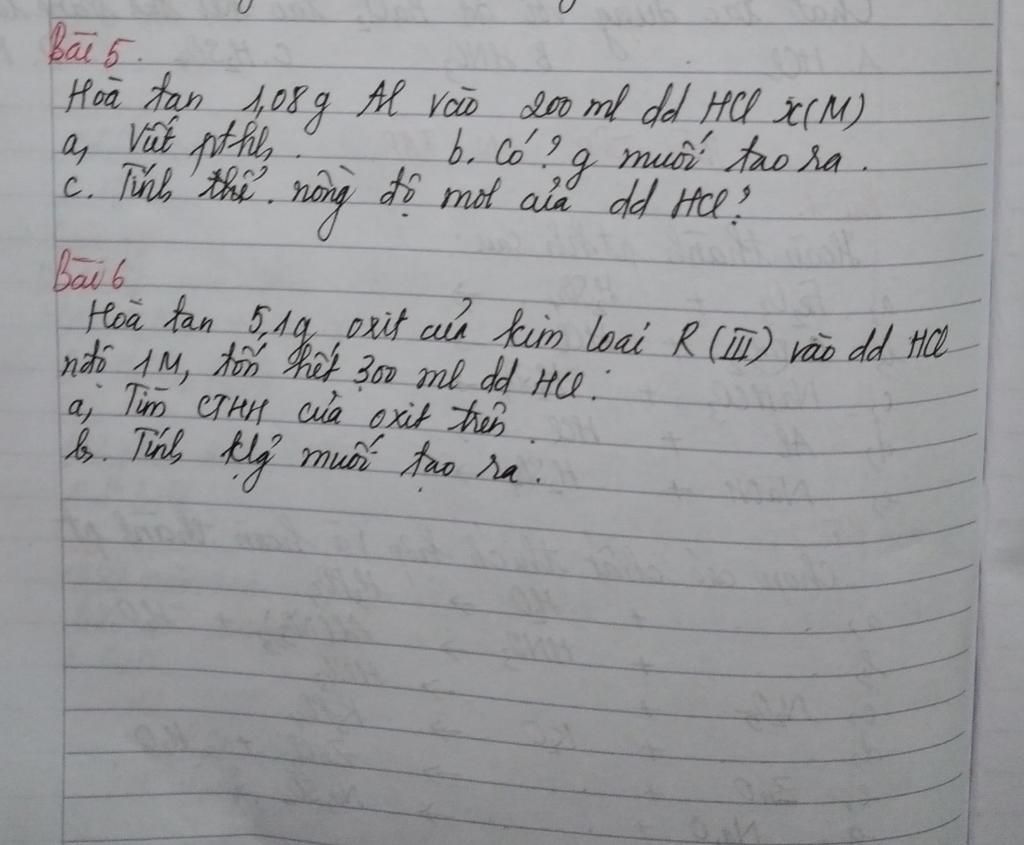 Bài 5.
Hoà tan 1,08g Al vào 200 ml dd HCl x(M)
a, Viết pthh. b. Có ? g muối tạo ra.
c. Tính thể. nồng độ mol của dd HCl?
Bài 6
Hoà tan 5,1g oxit của kim loại R (III) vào dd HCl
nđộ 1M, tốn hết 300 ml dd HCl.
a, Tìm CTHH của oxit trên.
b. Tính klg muối tạo ra.